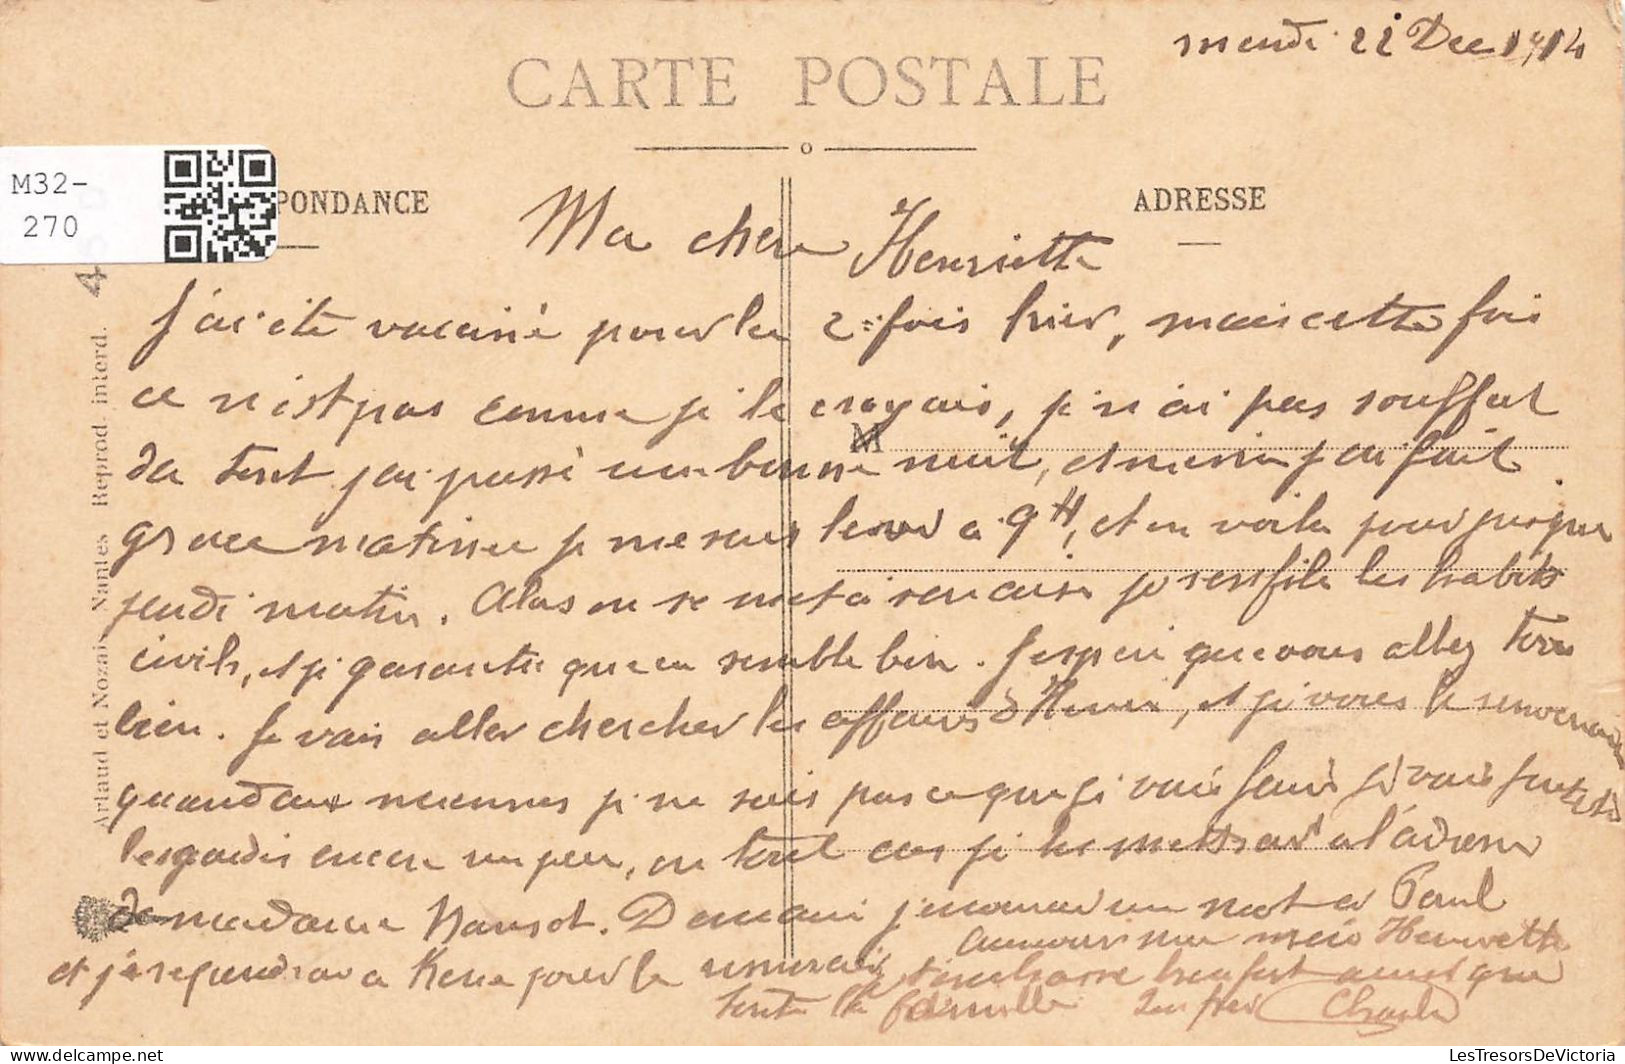 mardi 22 Dec 1914
CARTE POSTALE
M32-
270
PONDANCE
ADRESSE
Ma chere Henriette
J'ai été vacciné pour la 2e fois hier, mais cette fois
ce n'est pas comme je le croyais, je n'ai pas souffert
du tout j'ai passé une bonne nuit, et meme j'ai fait
grace matinee je me suis levé a 9H, et en voila pour jusque
jeudi matin. Alors on se met a son aise je renfile les habits
civils, et je garantie que ca semble bon. J'espere que vous allez tous
bien. Je vais aller chercher les affaires d'Henri, et je vous le renverrai
quand aux miennes je ne sais pas ce que je vais faire je vais peutetre
les garder encore un peu, en tout cas je les mettrai a l'adresse
de madame Hansot. Demain j'enverrai un mot a Paul
et je repondrai a René pour le remercier
Au revoir ma mere Henriette
t'embrasse bien fort ainsi que
toute la famille Ton frere Charles
M
Artaud et Nozais Nantes Reprod. interd.
LesTresorsDeVictoria